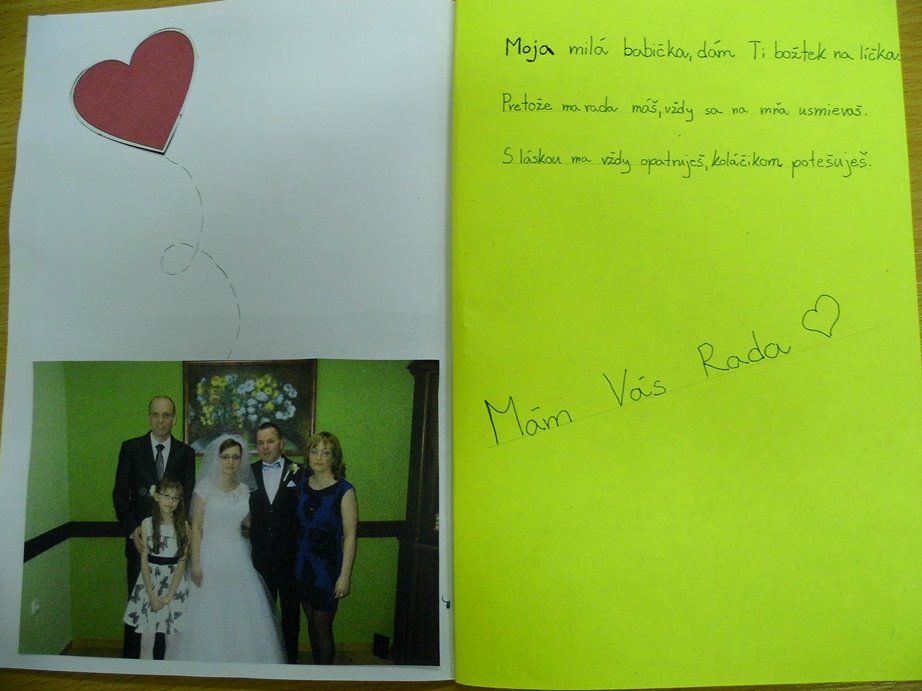 Moja milá babička, dám Ti božtek na líčka.
Pretože ma rada máš, vždy sa na mňa usmievaš.
S láskou ma vždy opatruješ, koláčikom potešuješ.
Mám Vás Rada